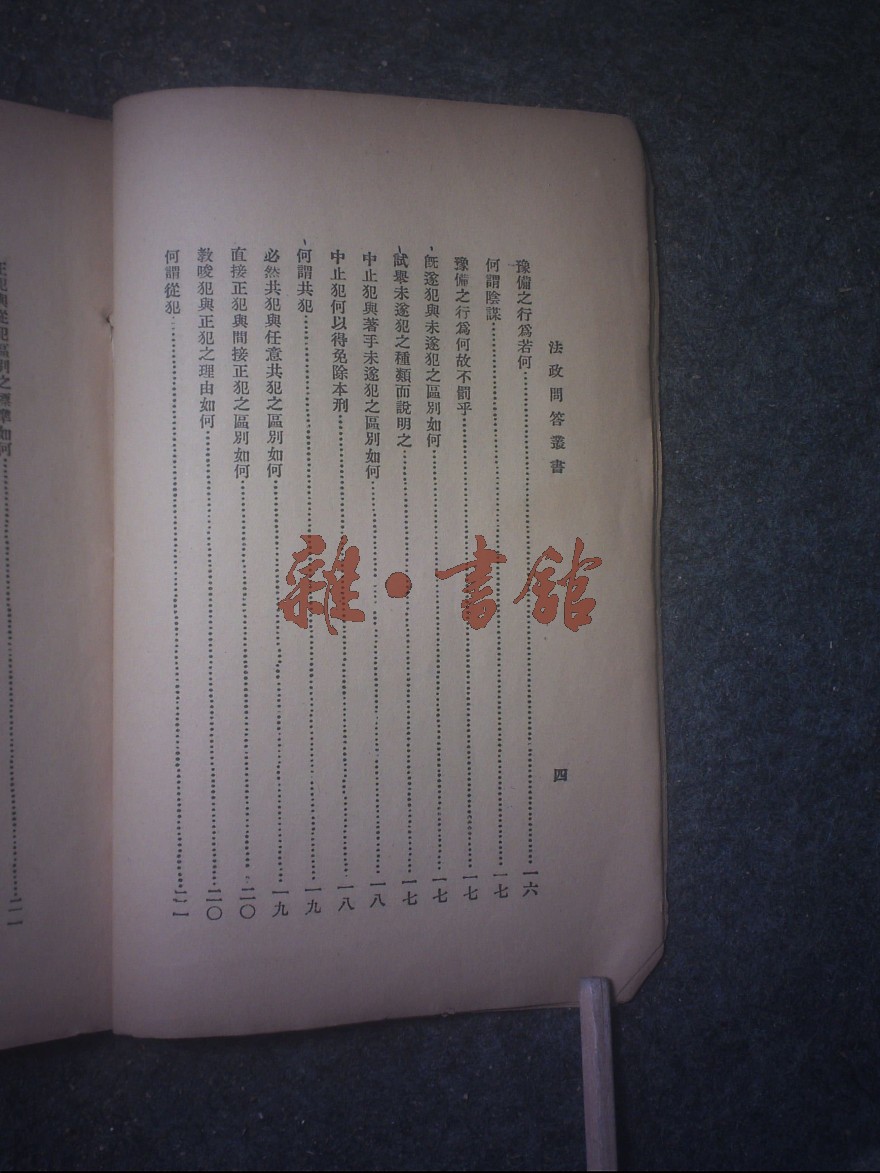 法政問答叢書
四
豫備之行爲若何……一六
何謂陰謀……一七
豫備之行爲何故不罰乎……一七
旣遂犯與未遂犯之區別如何……一七
試舉未遂犯之種類而說明之……一七
中止犯與著手未遂犯之區別如何……一八
中止犯何以得免除本刑……一八
何謂共犯……一九
必然共犯與任意共犯之區別如何……一九
直接正犯與間接正犯之區別如何……二〇
教唆犯與正犯之理由如何……二〇
何謂從犯……二一
正犯與從犯區別之標準如何……二一
雜·書館